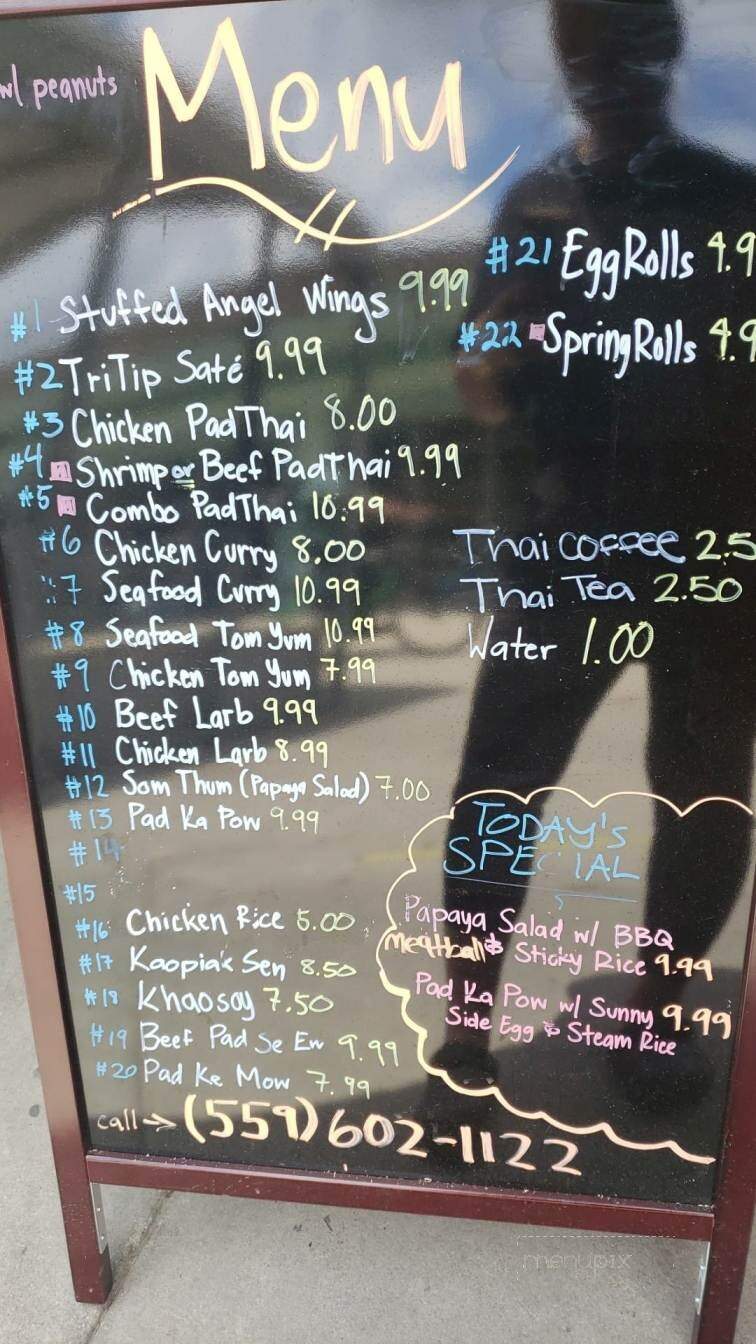 w/ peanuts
Menu
#1 Stuffed Angel Wings 9.99
#2 TriTip Saté 9.99
#3 Chicken PadThai 8.00
#4 Shrimp or Beef PadThai 9.99
#5 Combo PadThai 10.99
#6 Chicken Curry 8.00
#7 Seafood Curry 10.99
#8 Seafood Tom Yum 10.99
#9 Chicken Tom Yum 7.99
#10 Beef Larb 9.99
#11 Chicken Larb 8.99
#12 Som Thum (Papaya Salad) 7.00
#13 Pad Ka Pow 9.99
#14
#15
#16 Chicken Rice 5.00
#17 Kaopiak Sen 8.50
#18 Khaosoy 7.50
#19 Beef Pad Se Ew 9.99
#20 Pad Ke Mow 7.99
#21 Egg Rolls 4.9
#22 Spring Rolls 4.9
Thai Coffee 2.5
Thai Tea 2.50
Water 1.00
TODAY'S
SPECIAL
Papaya Salad w/ BBQ
Meatball & Sticky Rice 9.99
Pad Ka Pow w/ Sunny 9.99
Side Egg & Steam Rice
call → (559) 602-1122
menupix